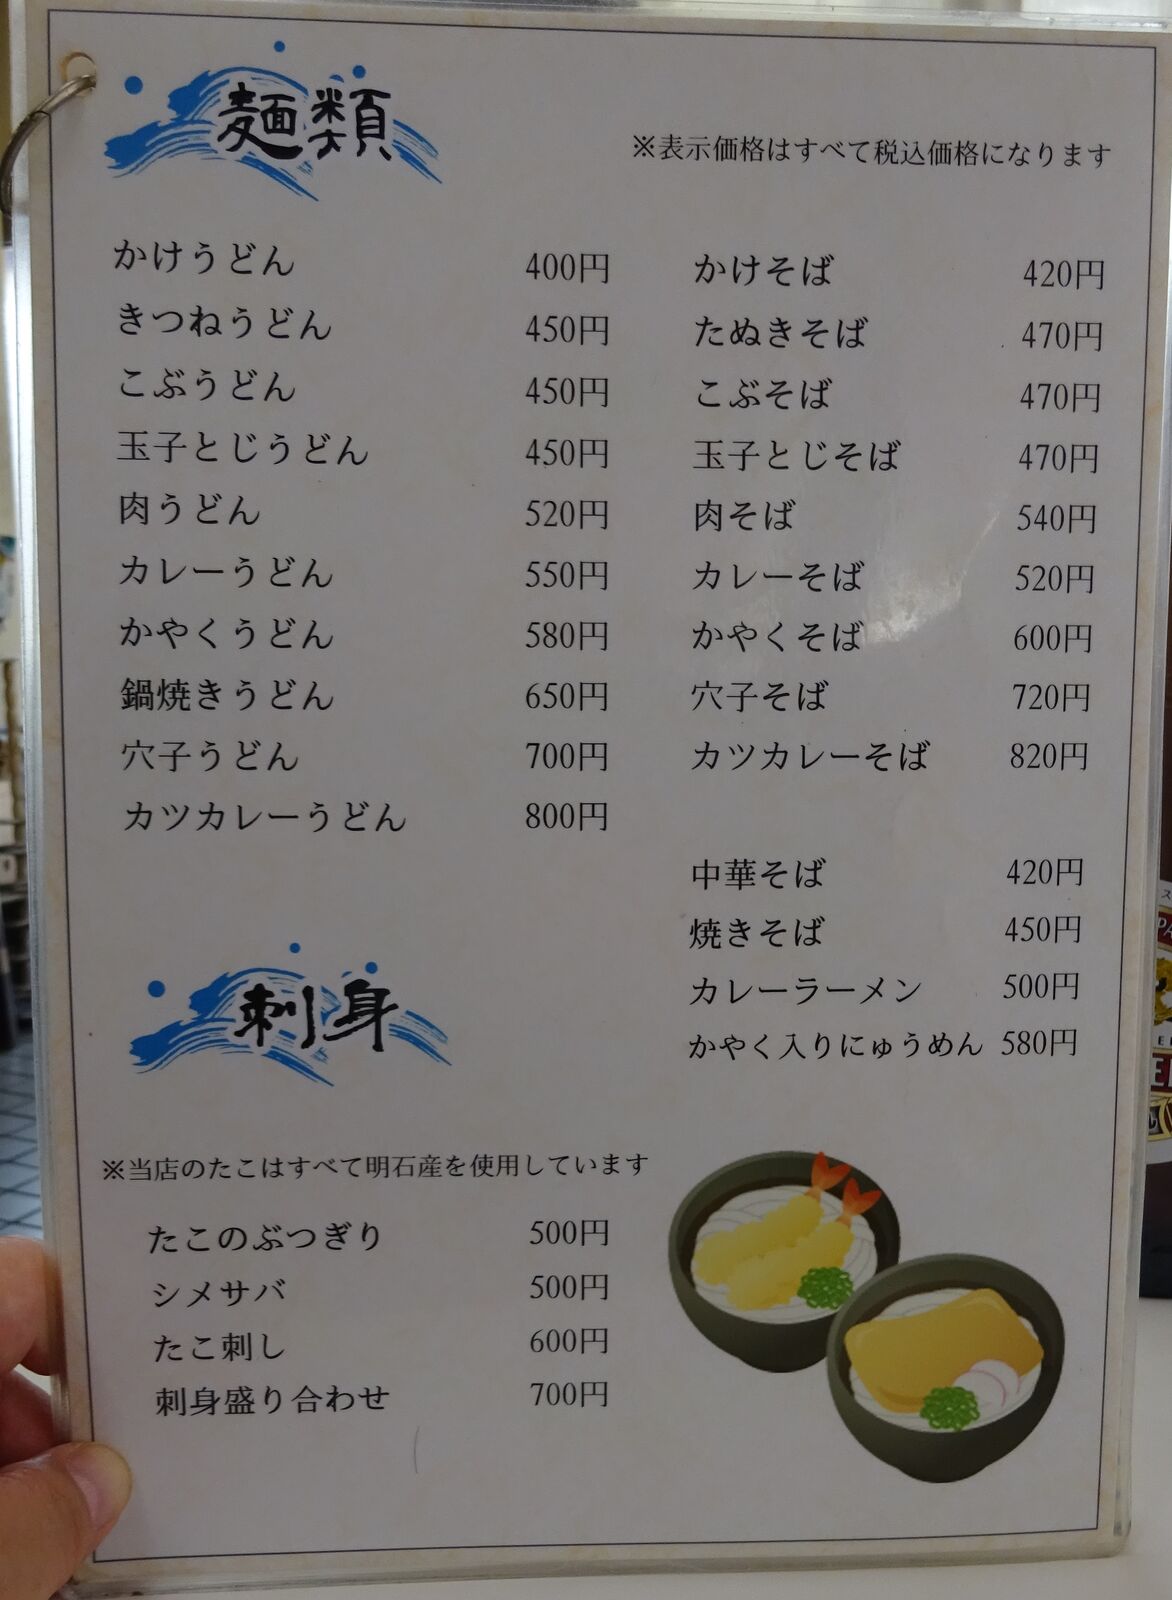 麺類
※表示価格はすべて税込価格になります
かけうどん 400円
きつねうどん 450円
こぶうどん 450円
玉子とじうどん 450円
肉うどん 520円
カレーうどん 550円
かやくうどん 580円
鍋焼きうどん 650円
穴子うどん 700円
カツカレーうどん 800円
かけそば 420円
たぬきそば 470円
こぶそば 470円
玉子とじそば 470円
肉そば 540円
カレーそば 520円
かやくそば 600円
穴子そば 720円
カツカレーそば 820円
中華そば 420円
焼きそば 450円
カレーラーメン 500円
かやく入りにゅうめん 580円
刺身
※当店のたこはすべて明石産を使用しています
たこのぶつぎり 500円
シメサバ 500円
たこ刺し 600円
刺身盛り合わせ 700円